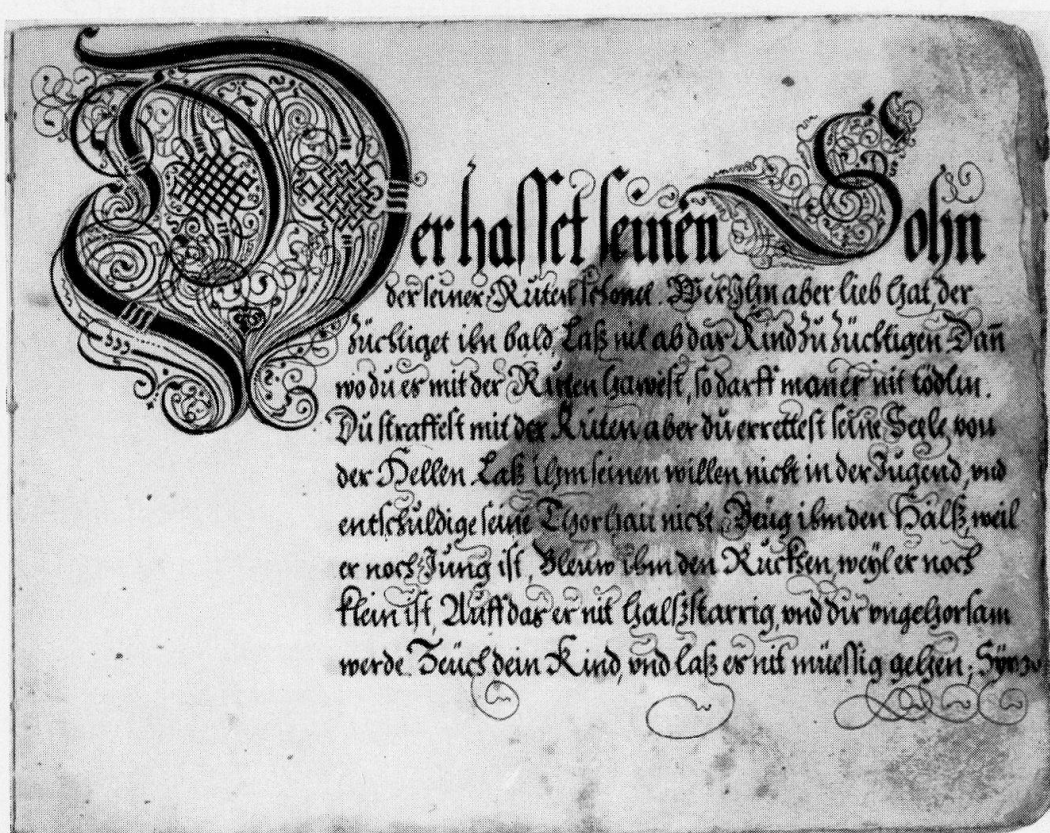 Der hasset seinen Sohn
der seiner Ruten schonet. Wer Ihn aber lieb hat, der
züchtiget ihn bald, Laß nit ab das Kind zu züchtigen, Dañ
wo du es mit der Ruten hawest, so darff man er nit tödtin.
Du straffest mit der Ruten aber du errettest seine Seele von
der Hellen. Laß ihm seinen willen nicht in der Jugend, vnd
entschuldige seine Thorhait nicht. Beüg ihm den Halß, weil
er noch Jung ist, Bleüw ihm den Ruckhen, weyl er noch
klein ist, Auff das er nit halßstarrig, vnd dir vngehorsam
werde. Zeüch dein Kind, vnd laß es nit müessig gehen;